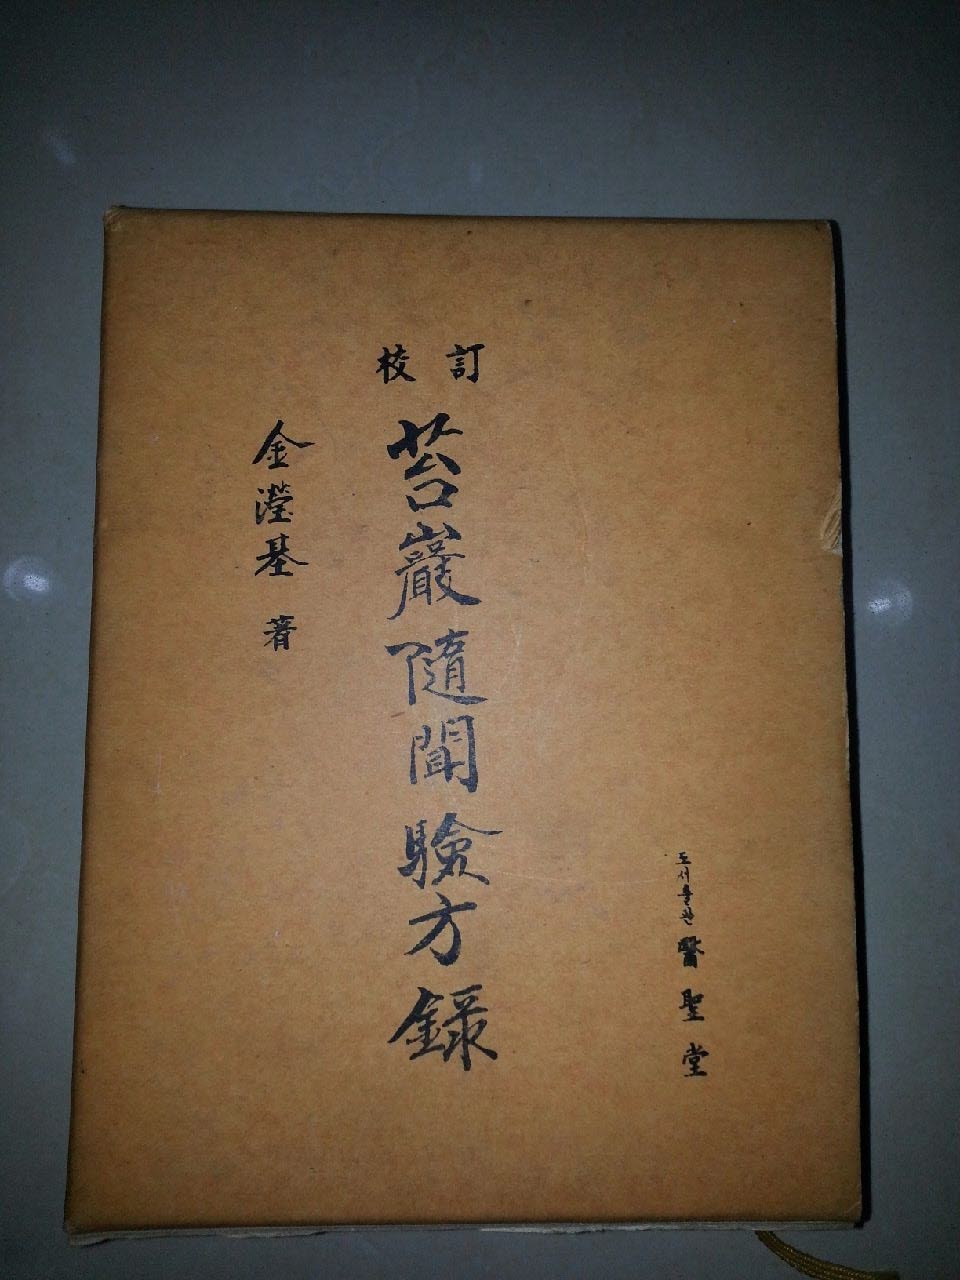 校訂
苔巖隨聞驗方錄
金瀅基 著
도서출판 醫聖堂